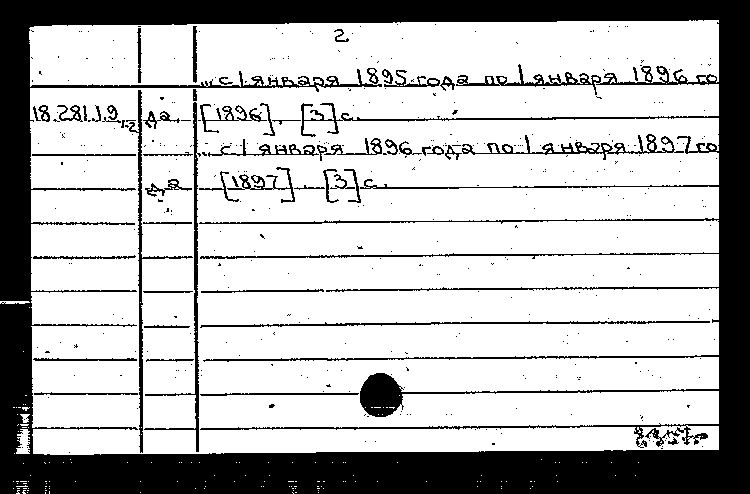 2
... с 1 января 1895 года по 1 января 1896 го
18.281.1.9 1-2 да. [1896]. [3] с.
... с 1 января 1896 года по 1 января 1897 го
да [1897]. [3] с.